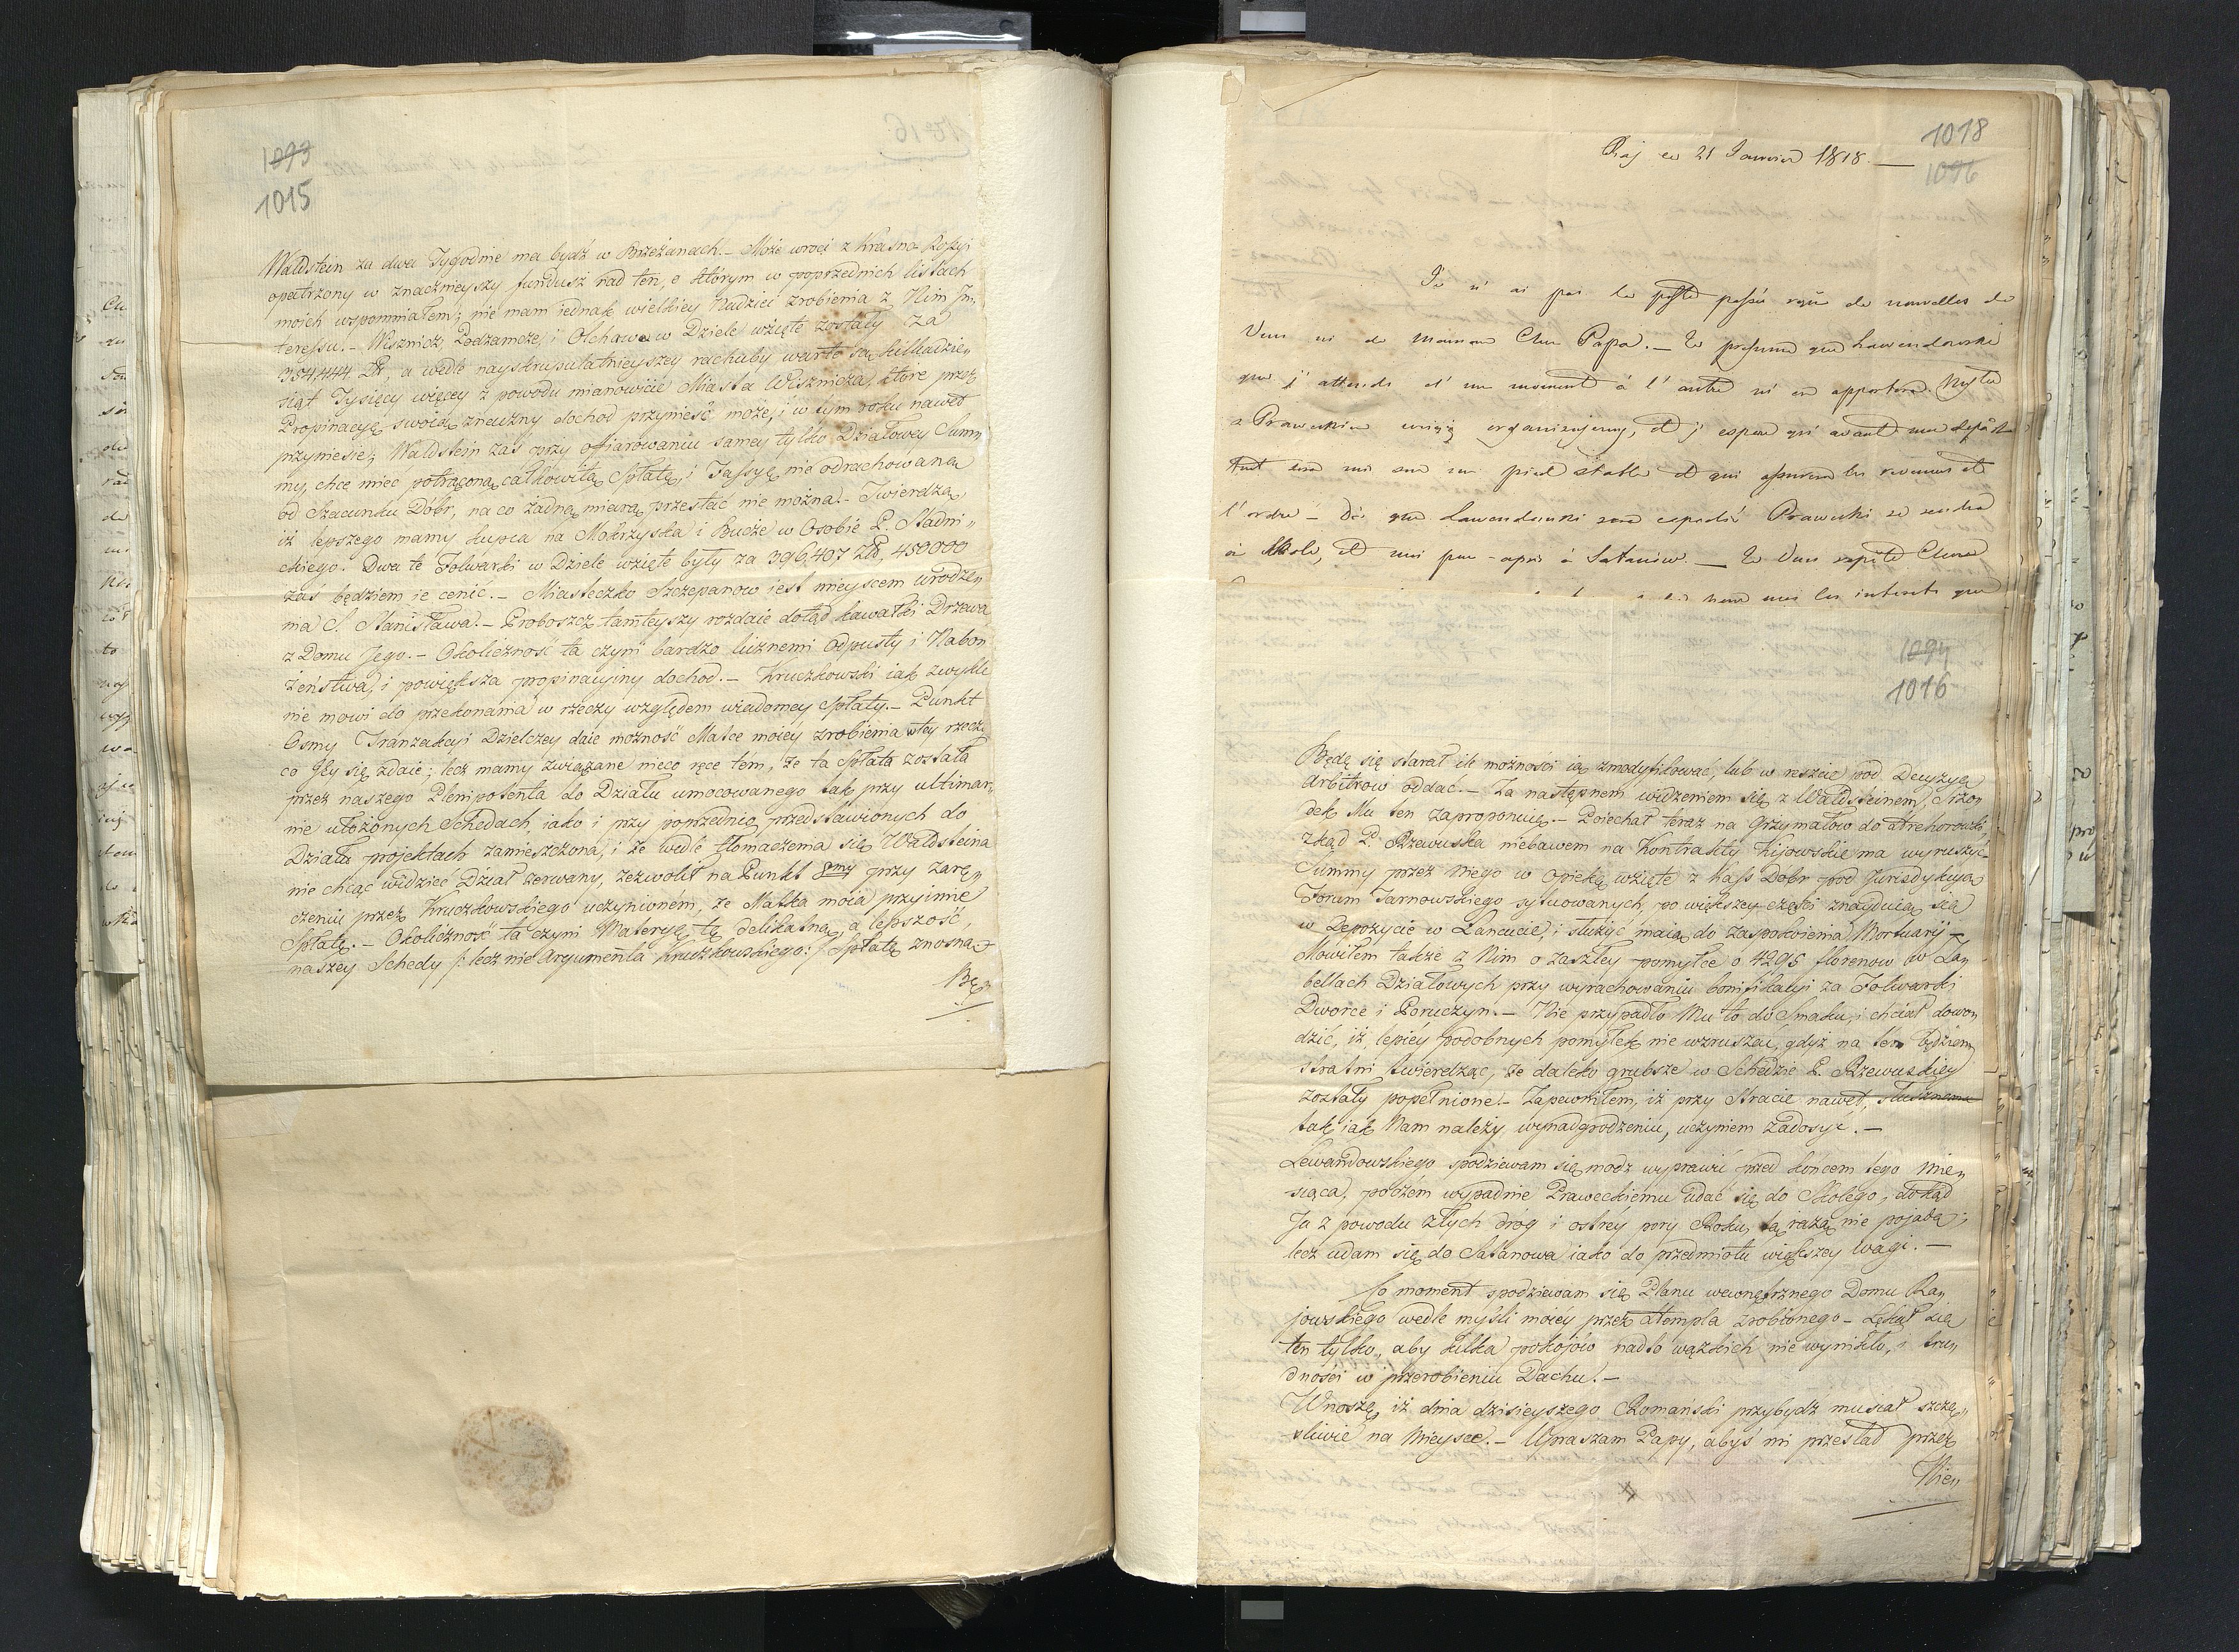 1093
1015
Waldstein za dwa Tygodnie ma bydź w Brzeżanach. – Może wroci z Krasno Rossyi
opatrzony w znacznieyszy fundusz nad ten, o którym w poprzednich listach
moich wspomniałem; nie mam iednak wielkiey Nadziei zrobienia z Nim In„
teressu. – Wisznicz, Podzamcze, i Olchawa w Dziele wzięte zostały za
354,444 ZR, a wedle nayskrupulatnieyszey rachuby warte są kilkadzie„
siąt Tysięcy więcey z powodu mianowicie Miasta Wisznicza, które przez
Propinacyę swoią znaczny dochod przynieść może, i w tym roku nawet
przyniesie; Waldstein zaś przy ofiarowaniu samey tylko Działowey Sum„
my, chce mieć potrąconą całkowitą Spłatę, i Tassyę nie odrachowaną
od Szacunku Dóbr, na co żadną miarą przestać nie można. – Twierdzą,
iż lepszego mamy kupca na Mokrzyska i Bucze w Osobie P. Stadni„
ckiego. Dwa te Folwarki w Dziele wzięte były za 396,407 ZR, 450000
zaś będziem je cenić. – Miasteczko Szczepanow iest mieyscem urodze„
nia S. Stanisława. – Proboszcz tamteyszy rozdaie dotąd kawałki Drzewa
z Domu Jego. – Okoliczność ta czyni bardzo licznemi Odpusty i Nabo„
żeństwa, i powiększa propinacyiny dochod. – Kruczkowski iak zwykle
nie mowi do przekonania w rzeczy względem wiadomey Spłaty. – Punkt
Osmy Tranzakcyi Dzielczey daie możność Matce moiéy zrobienia w tey rzeczy
co Jey się zdaie; lecz mamy związane nieco ręce tém, że ta Spłata została
przez naszego Plenipotenta do Działu umocowanego tak przy ultimar„
nie ułożonych Schedach, iako i przy poprzednio przedstawionych do
Działu projektach zamieszczona, i że wedle tłomaczenia się Waldsteina
nie chcąc widzieć Dział zerwany, zezwolił na Punkt 8my przy zarę„
czeniu przez Kruczkowskiego uczynionem, że Matka moia przyimie
Spłatę. – Okoliczność ta czyni Materyę tę delikatną, a lepszość
naszey Schedy /: lecz nie Argumenta Kruczkowskiego :/ Spłatę znośną
Bę„
1018
1096
Raj ce 21 Janvier 1818. —
Je n'ai pas la poste passée reçu de nouvelles de
Vous ni de maman Cher Papa. – Je presume que Lawendowski
que j'attends d'un moment à l'autre m'en apportera. Nous
Prawecki organizujemy, et j'espere qu'avant mon départ
tout sera mis sur un pied stable et qui assurera les revenus et
l'ordre – Dès que Lawendowski sera expedié Prawecki se rendra
à Skole, et moi peu-après à Satanów. — Je Vous repète Cher
les interets que
1094
1016
Będę się starał ile możności ią zmodyfikować, lub w reszcie pod Decyzyą
Arbitrow oddać. – Za następnem widzeniem się z Waldsteinem, Srzo„
dek Mu ten zaproponuię. – Poiechał teraz na Grzymałow do
zkąd P. Rzewuska niebawem na Kontrakty Kijowskie ma wyruszyć –
Summy przez niego w opiekę wzięte z Kass Dobr pod Jurisdykcyą
Forum Tarnowskiego sytuowanych, po większey części znayduią się
w Depozycie w Lancucie, i służyć maią do zaspokoienia Mortuarij –
Mówiłem także z Nim o zaszłey pomyłce o 4295 florenow w Ta„
bellach Działowych przy wyrachowaniu bonifikacyi za Folwarki
Dworce i Poruczyn. – Nie przypadło Mu to do Smaku, i chciał dowo„
dzić, iż lepiéy podobnych pomyłek nie wzruszać, gdyż na tém będziem
stratni twierdząc, że daleko grubsze w Schedzie P. Rzewuskiey
zostały popełnione. – Zapewniłem, iż przy Stracie nawet, słusznemu
tak iak Nam należy wynadgrodzeniu, uczyniem zadosyć. –
Lewandowskiego spodziewam się módz wyprawić przed końcem tego Mie„
siąca, poczém wypadnie Praweckiemu udać się do Skolégo, dokąd
Ja z powodu złych dróg i ostréy pory Roku, tą razą nie pojadę;
lecz udam się do Satanowa iako do przedmiotu większey wagi. –
Co moment spodziewam się Planu wewnętrznego Domu Ra„
jowskiego wedle myśli moiéy przez zrobionego – Lękał się
ten tylko, aby kilka pokojów nadto wązkich nie wynikło, i tru„
dności w przerobieniu Dachu. –
Wnoszę, iż dnia dzisieyszego Romański przybydź musiał szczę„
śliwie na Mieysce. – Upraszam Papy, abyś mi przesłał przez
Nie„